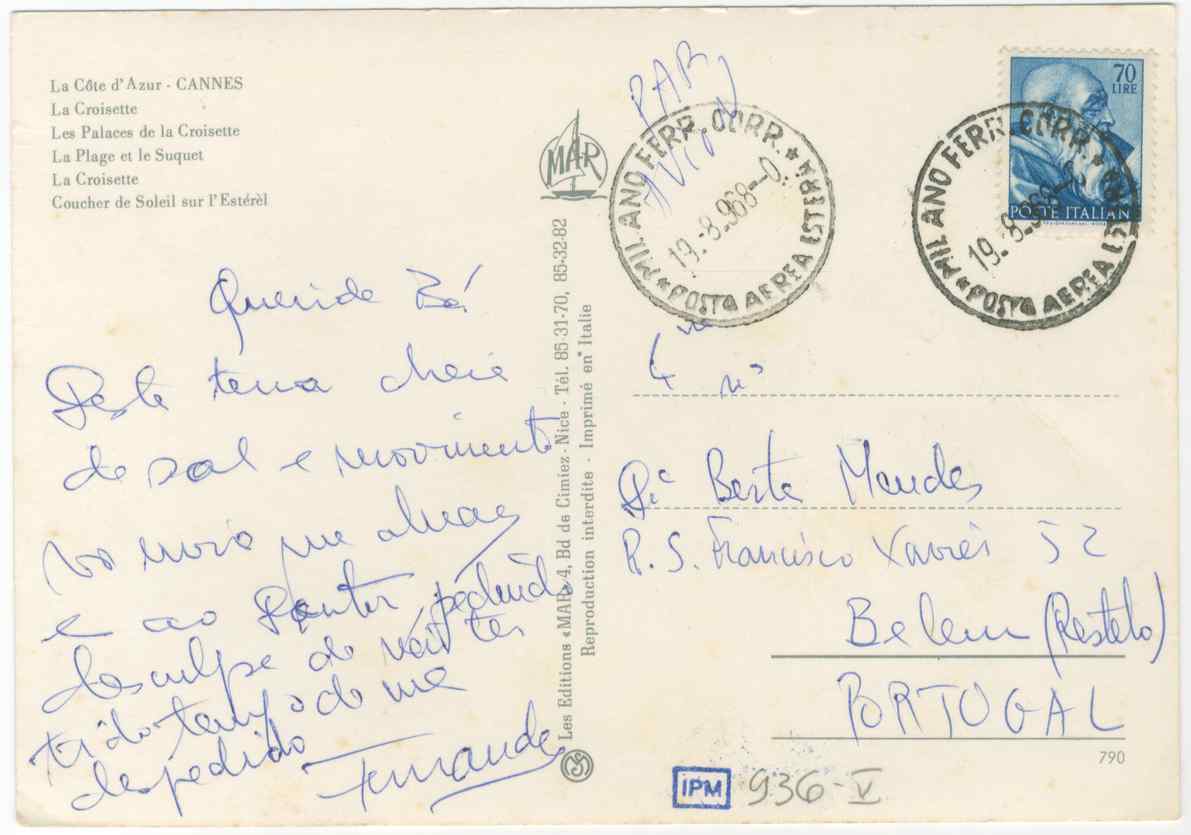 La Côte d'Azur - CANNES
La Croisette
Les Palaces de la Croisette
La Plage et le Suquet
La Croisette
Coucher de Soleil sur l'Estérèl
Querida Bé
Desta terra cheia
de sol e movimento
vos
e ao
desculpe de não ter
tido tempo de me
despedido
Fernanda
MAR
Les Editions «MAR» 4, Bd de Cimiez - Nice - Tél. 85-31-70, 85-32-82
Reproduction interdite - Imprimé en Italie
PAR
AVION
MILANO FERR. CORR. * POSTA AEREA ESTERA *
19.-8.968--0.
70
LIRE
POSTE ITALIANE
MILANO FERR. CORR. * POSTA AEREA ESTERA *
19.-8.968
Berta Mendes
R. S. Francisco Xavier 52
Belem (Restelo)
PORTUGAL
790
IPM 936-V